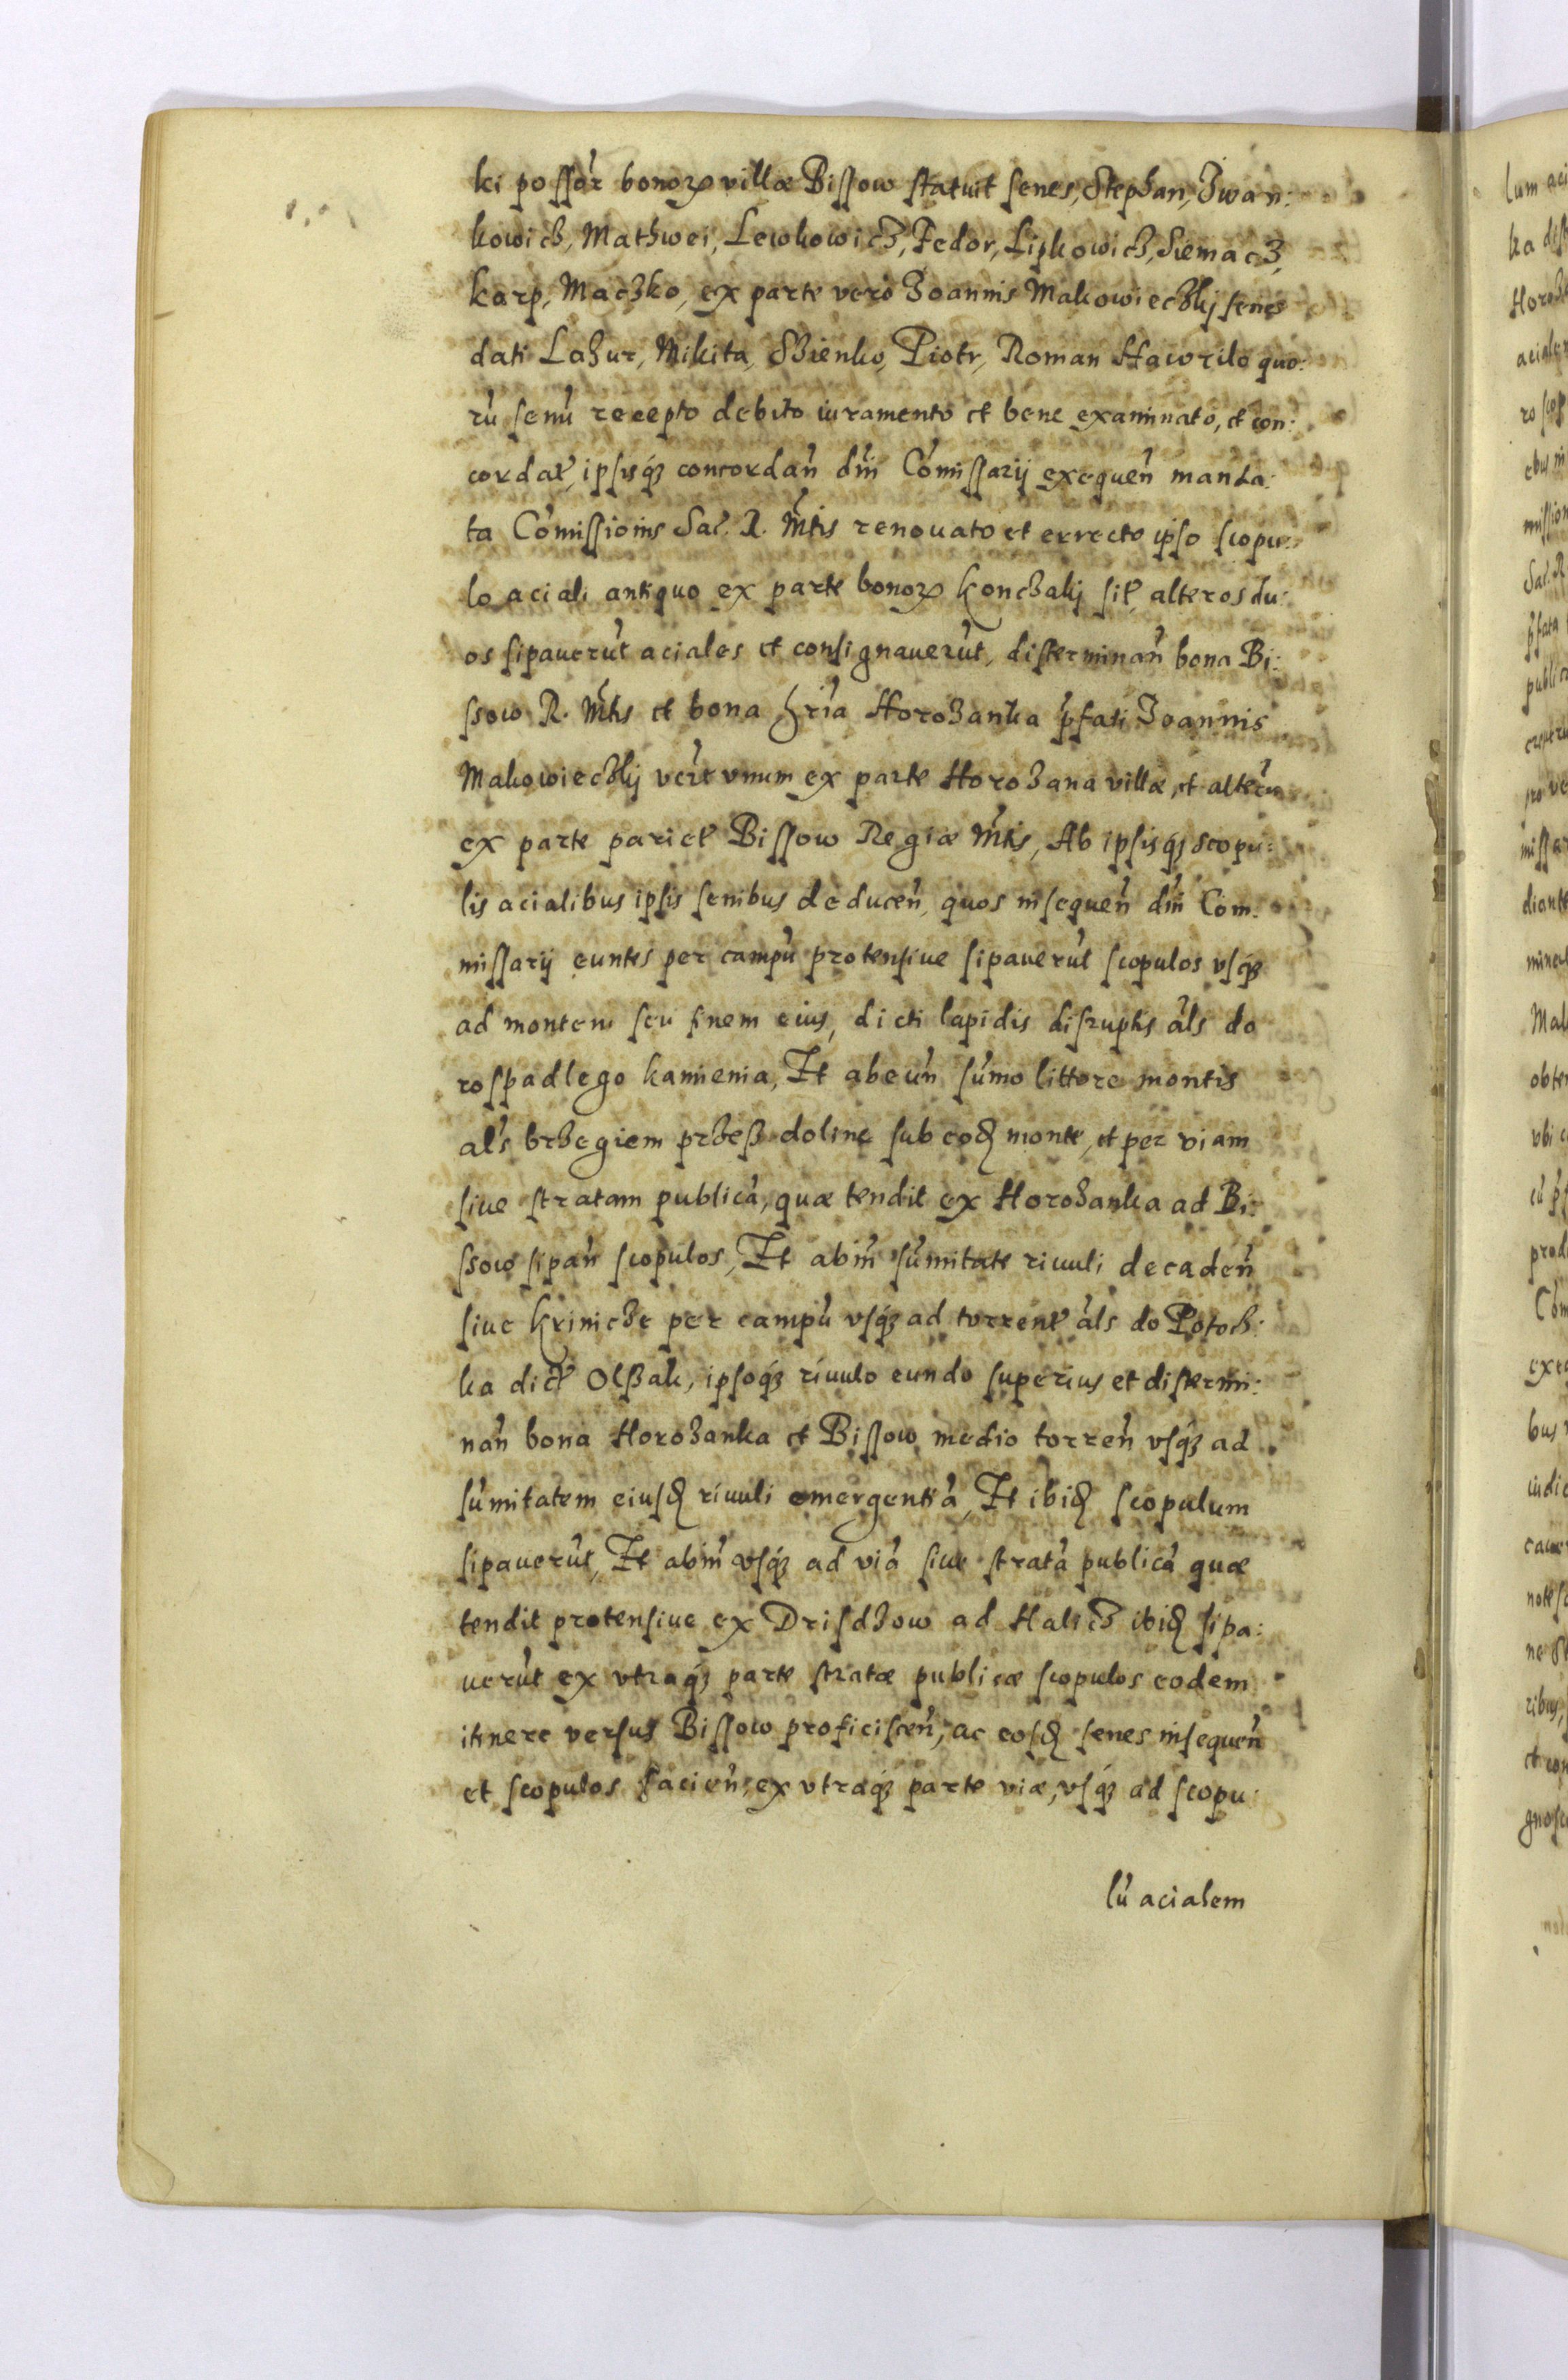 ki possor̃ bonoꝝ villæ Bissow statuit senes, Stephan, Iwan:
kowich, Mathwei, Lewkowicz, Fedor, Lipkowich, Siemacz,
karp, Maczko, ex parte vero Joannis Makowieczkij senes
dati Lazur, Mikita, Szienko, Piotr, Roman Hawrilo quo:
rũ senũ recepto debito iuramento et bene examinato, et con:
cordat̃, ipsisq̃ȝ concordañ dñi Cõmissarij exequeñ manda:
ta Cõmissionis Sac̃. R. Mt̃is renouato et errecto ipso scopu:
lo aciali antiquo ex parte bonoꝝ konczaki sit̃, alteros du:
os sipauerũt aciales et consignauerũt, disterminañ bona Bi:
ssow R. Mt̃is et bona hr̃ia Horozanka p̃fati Joannis
Makowieczkij ver̃te vnum ex parte Horozana villæ, et alterũ
ex parte pariet̃ Bissow Regiæ Mt̃is, Ab ipsisq̃ȝ scopu:
lis acialibus ipsis senibus deduceñ, quos insequeñ dñi Com:
missarij euntes per campũ protensiue sipauerũt scopulos vsq̃ȝ
ad montem seu finem eius, dicti lapidis disruptis al̃s do
rospadlego kamienia, It abeuñ sũmo littore montis
al̃s brzegiem przeß doline sub eodꝫ monte, et per viam
siue stratam publicã, quæ tendit ex Horozanka ad Bi:
ssow sipañ scopulos, It abiñ sũmitate riuuli decadeñ
siue krinicze per campũ vsq̃ȝ ad torrent̃ al̃s do Potoch:
ka dict̃ Olßak, ipsoq̃ȝ riuulo eundo superius et distermi:
nañ bona Horozanka et Bissow medio torreñ vsq̃ȝ ad
sũmitatem eiusdꝫ riuuli emergentiã, It ibidꝫ scopulum
sipauerũt, It abiñ vsq̃ȝ ad viã siue stratã publicã quæ
tendit protensiue ex Drisdzow ad Halicz ibidꝫ sipa:
uerũt ex vtraq̃ȝ parte stratæ publicæ scopulos eodem
itinere versus Bissow proficisceñ, ac eosdꝫ senes insequeñ
et scopulos facieñ, ex vtraq̃ȝ parte viæ, vsq̃ȝ ad scopu:
lũ acialem